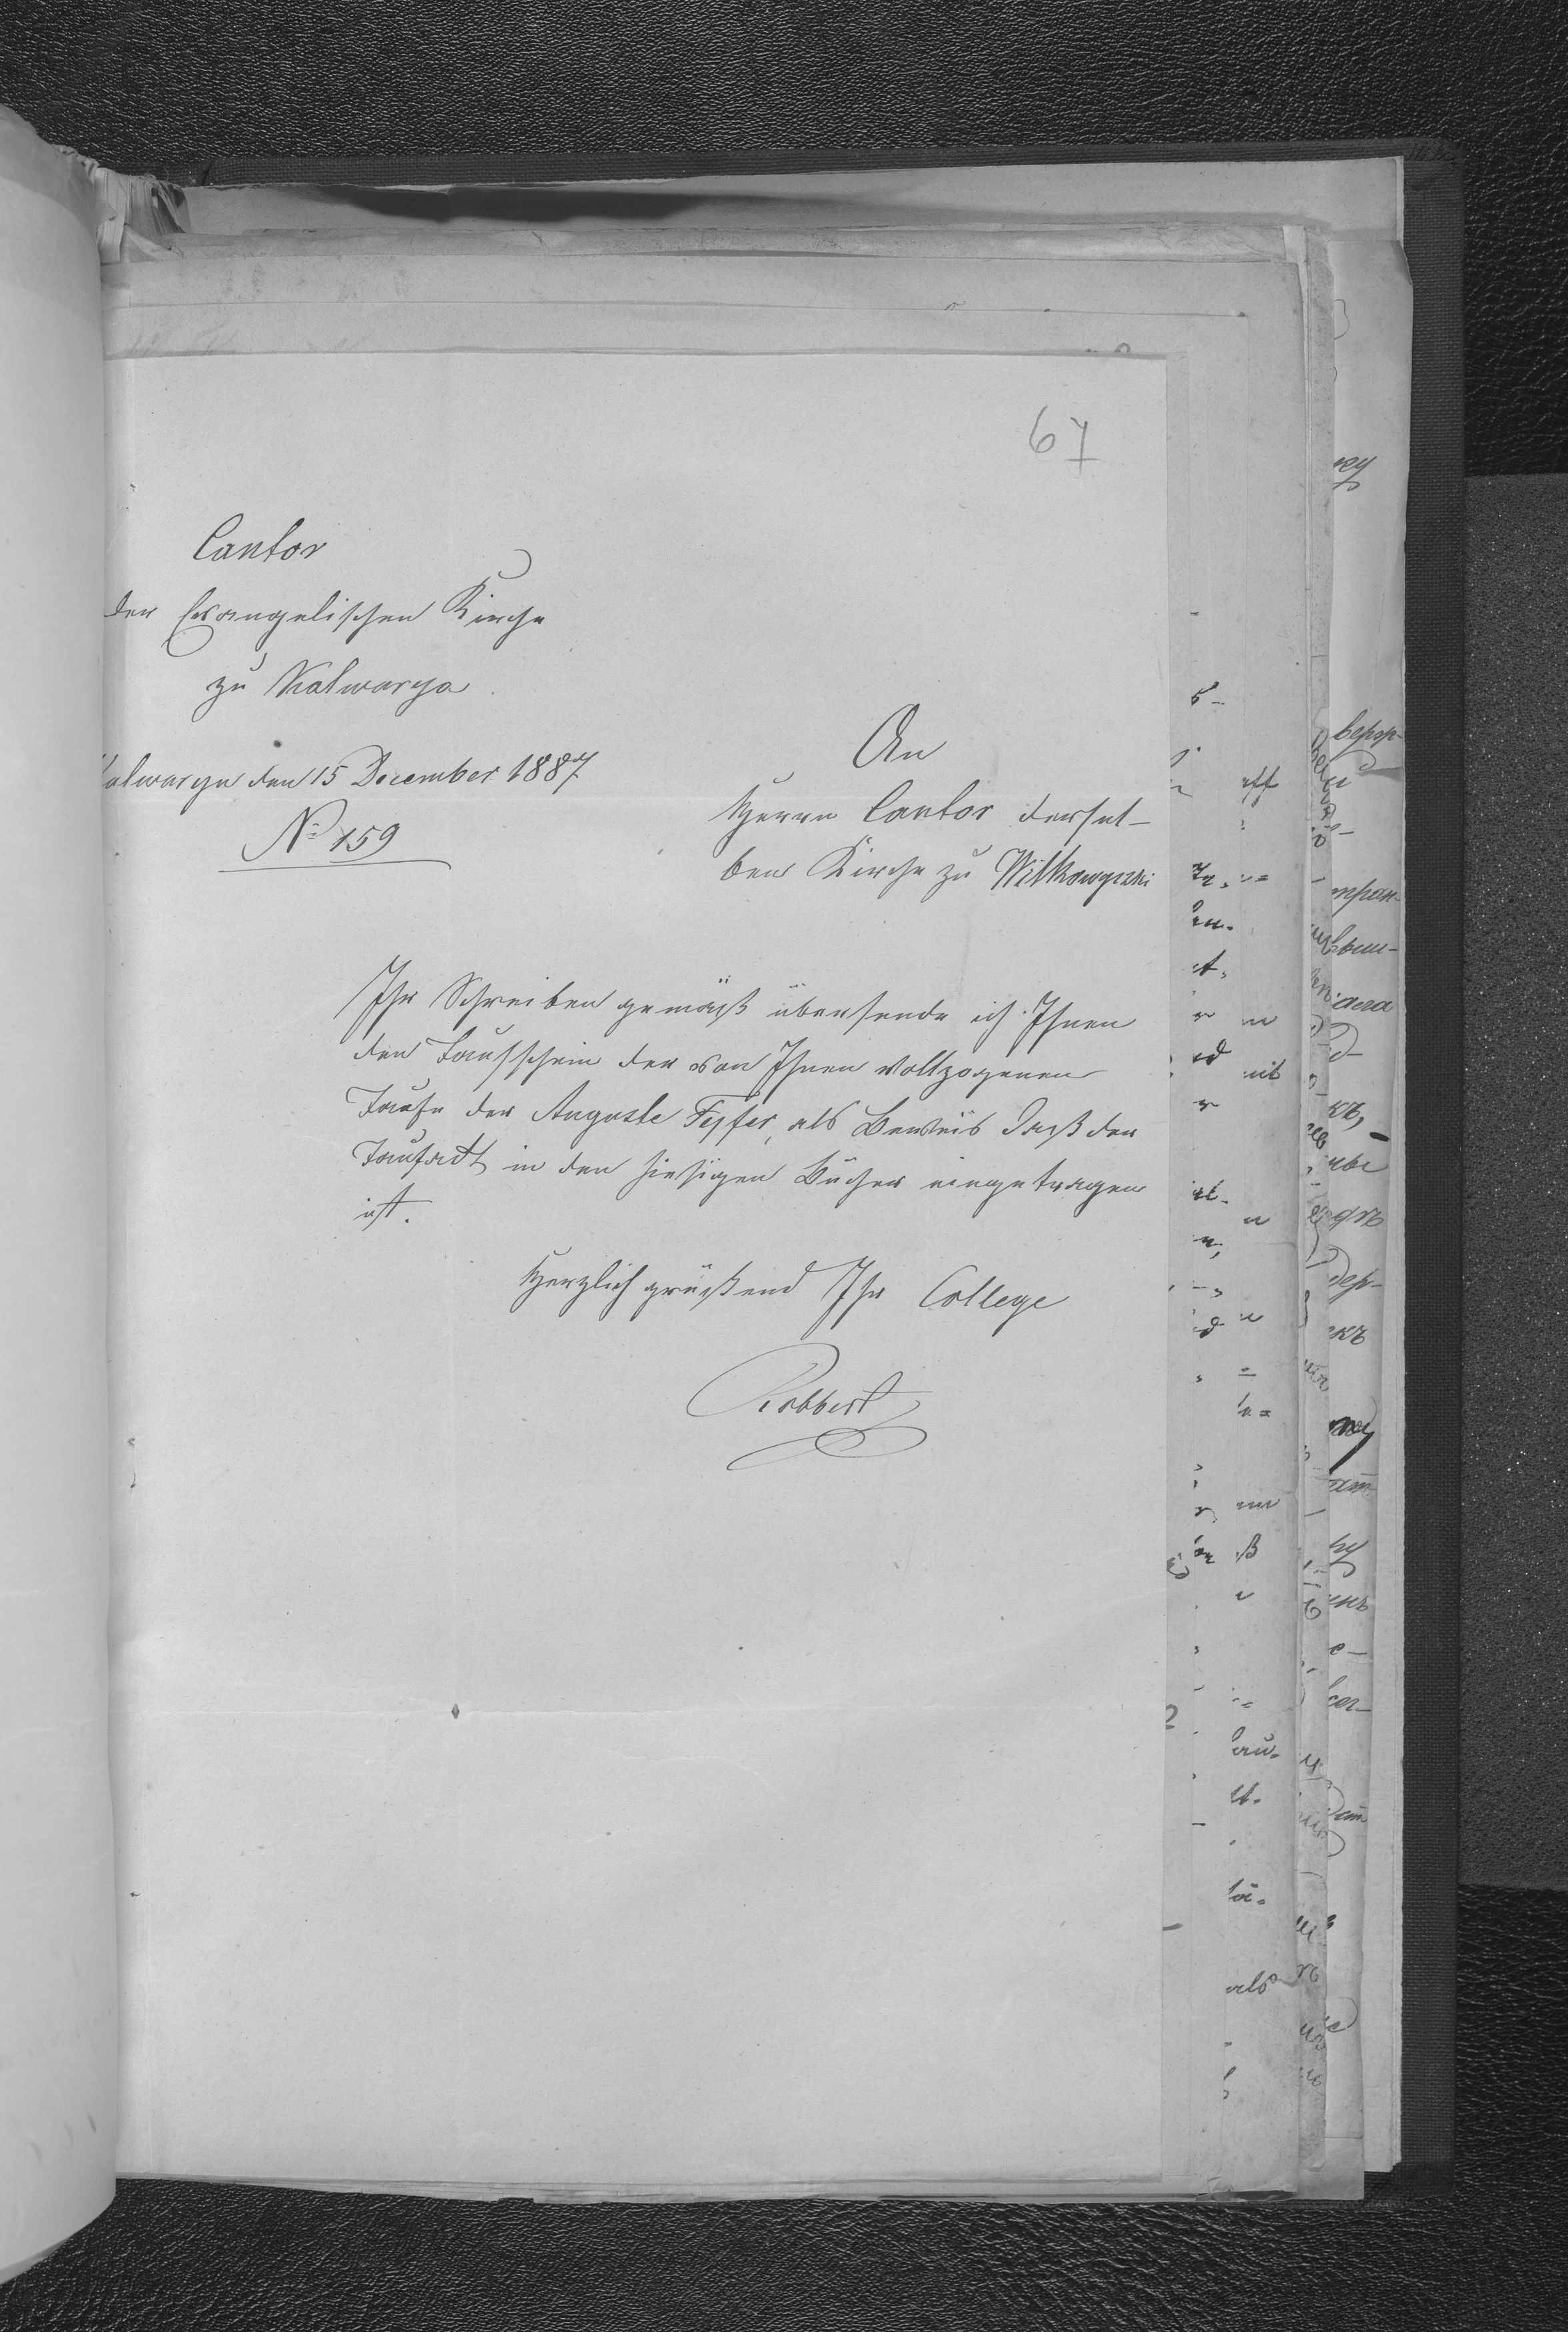 67
Cantor
der Evangelischen Kirche
zu Kalwarya
Kalwarya den 15 December 1887
No 159
An
Herrn Cantor dersel-
ben Kirche zu Wilkowyszki
Ihr Schreiben gemäß übersende ich Ihnen
den Taufschein der von Ihnen vollzogenen
Taufe der Auguste Fejfer, als Beweis daß der
Taufact in den hiesigen Bücher eingetragen
ist.
Herzlich grüßend Ihr College
Robbert